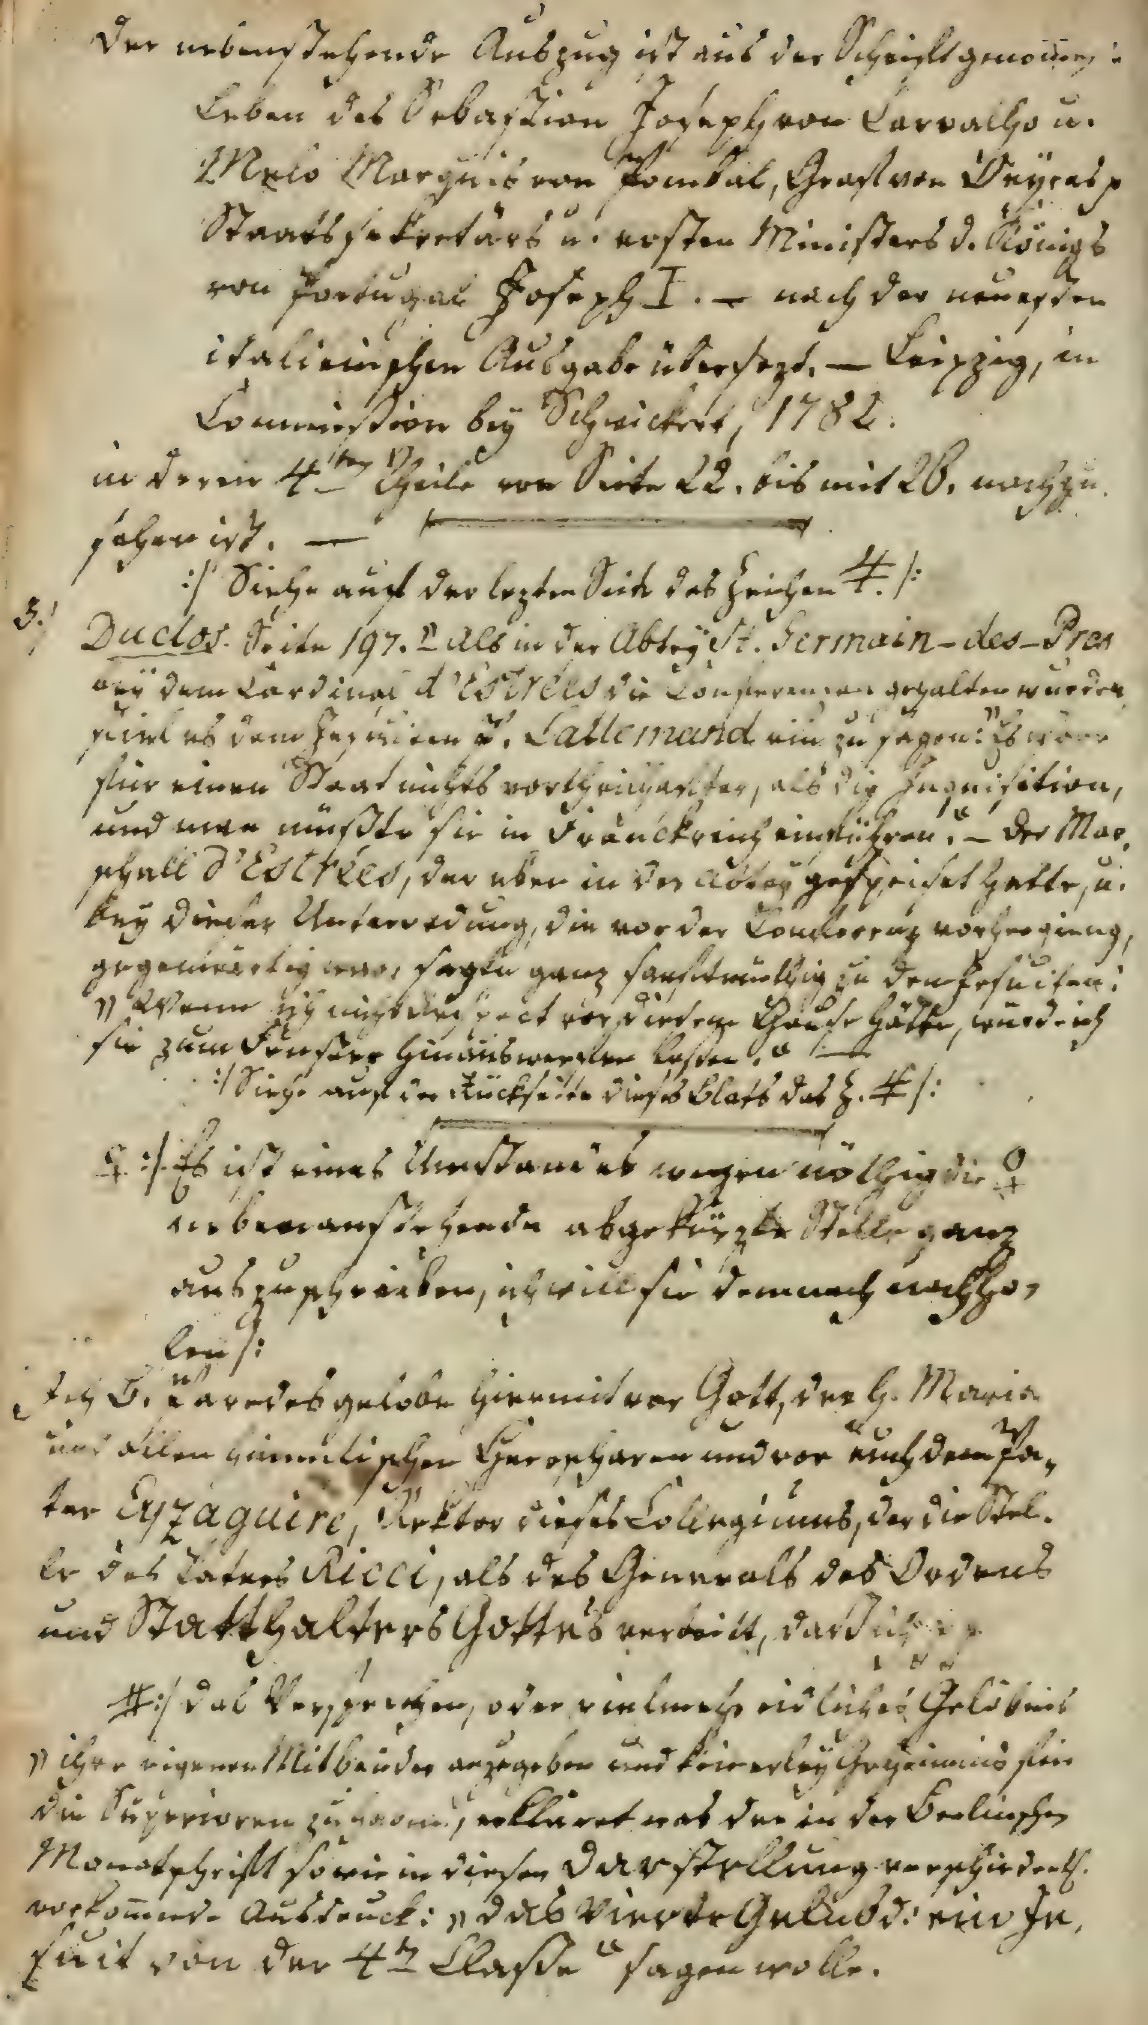 Der nebenstehende Auszug ist aus der Schrift genomen:
Leben des Sebastian Joseph von Carvalho u.
Melo Marquis von Pombal, Graf von Oeyras p
Staatssekretärs u. ersten Ministers d. Königs
von Portugal Joseph I. — nach der neuesten
italienischen Ausgabe übersezt. — Leipzig, in
Commission bey Schwickert, 1782.
in deren 4ten Theile von Seite 22. bis mit 26. nachzu
sehen ist. —
:/ Siehe auf der lezten Seite das Zeichen ♃. /:
3./ Duclos. Seite 197. " Als in der Abtey St. Germain-des-Pres
bey dem Cardinal d'Estrées die Conferenzen gehalten wurden,
fiel es dem Jesuiten P. Lallemand ein zu sagen: "Es wäre
für einen Staat nichts vortheilhafter, als die Inquisition,
und man müßte sie in Franckreich einführen." — Der Mar,
schall d'Estrées, der eben in der Abtey gespeiset hatte, u.
bey dieser Unterredung, die vor der Conferenz vorhergieng,
gegenwärtig war, sagte ganz sanftmüthig zu den Jesuiten:
" Wenn ich nicht Respect vor diesem Hause hätte, würd ich
sie zum Fenster hinauswerfen laßen." —
:/ Siehe auf der Rückseite dieses Blats das Z. # /:
♀ :/ Es ist eines Umstandes wegen nöthig die ♀
nebenanstehende abgekürzte Stelle ganz
auszuschreiben, ich will sie demnach nachho,
len /:
Ich B. Paredes gelobe hiermit vor Gott, der H. Maria
und allen himmlischen Heerscharen und vor euch dem Pa,
ter Eyzaguire, Rektor dieses Collegiums, der die Stel,
le des Paters Ricci, als des Generals des Ordens
und Statthalters Gottes vertritt, daß ich
#:/ das Versprechen, oder vielmehr eidliches Gelübnis
" ihre eigenen Mitbrüder anzugeben und keinerley Geheimnis für
die Superioren zu haben, erkläret was der in der Berlinschen
Monatschrift so wie in diesen Darstellung verschiedentl.
vorkommende Ausdruck: " das vierte Gelübd: ein Je,
suit von der 4ten Classe " sagen wolle.